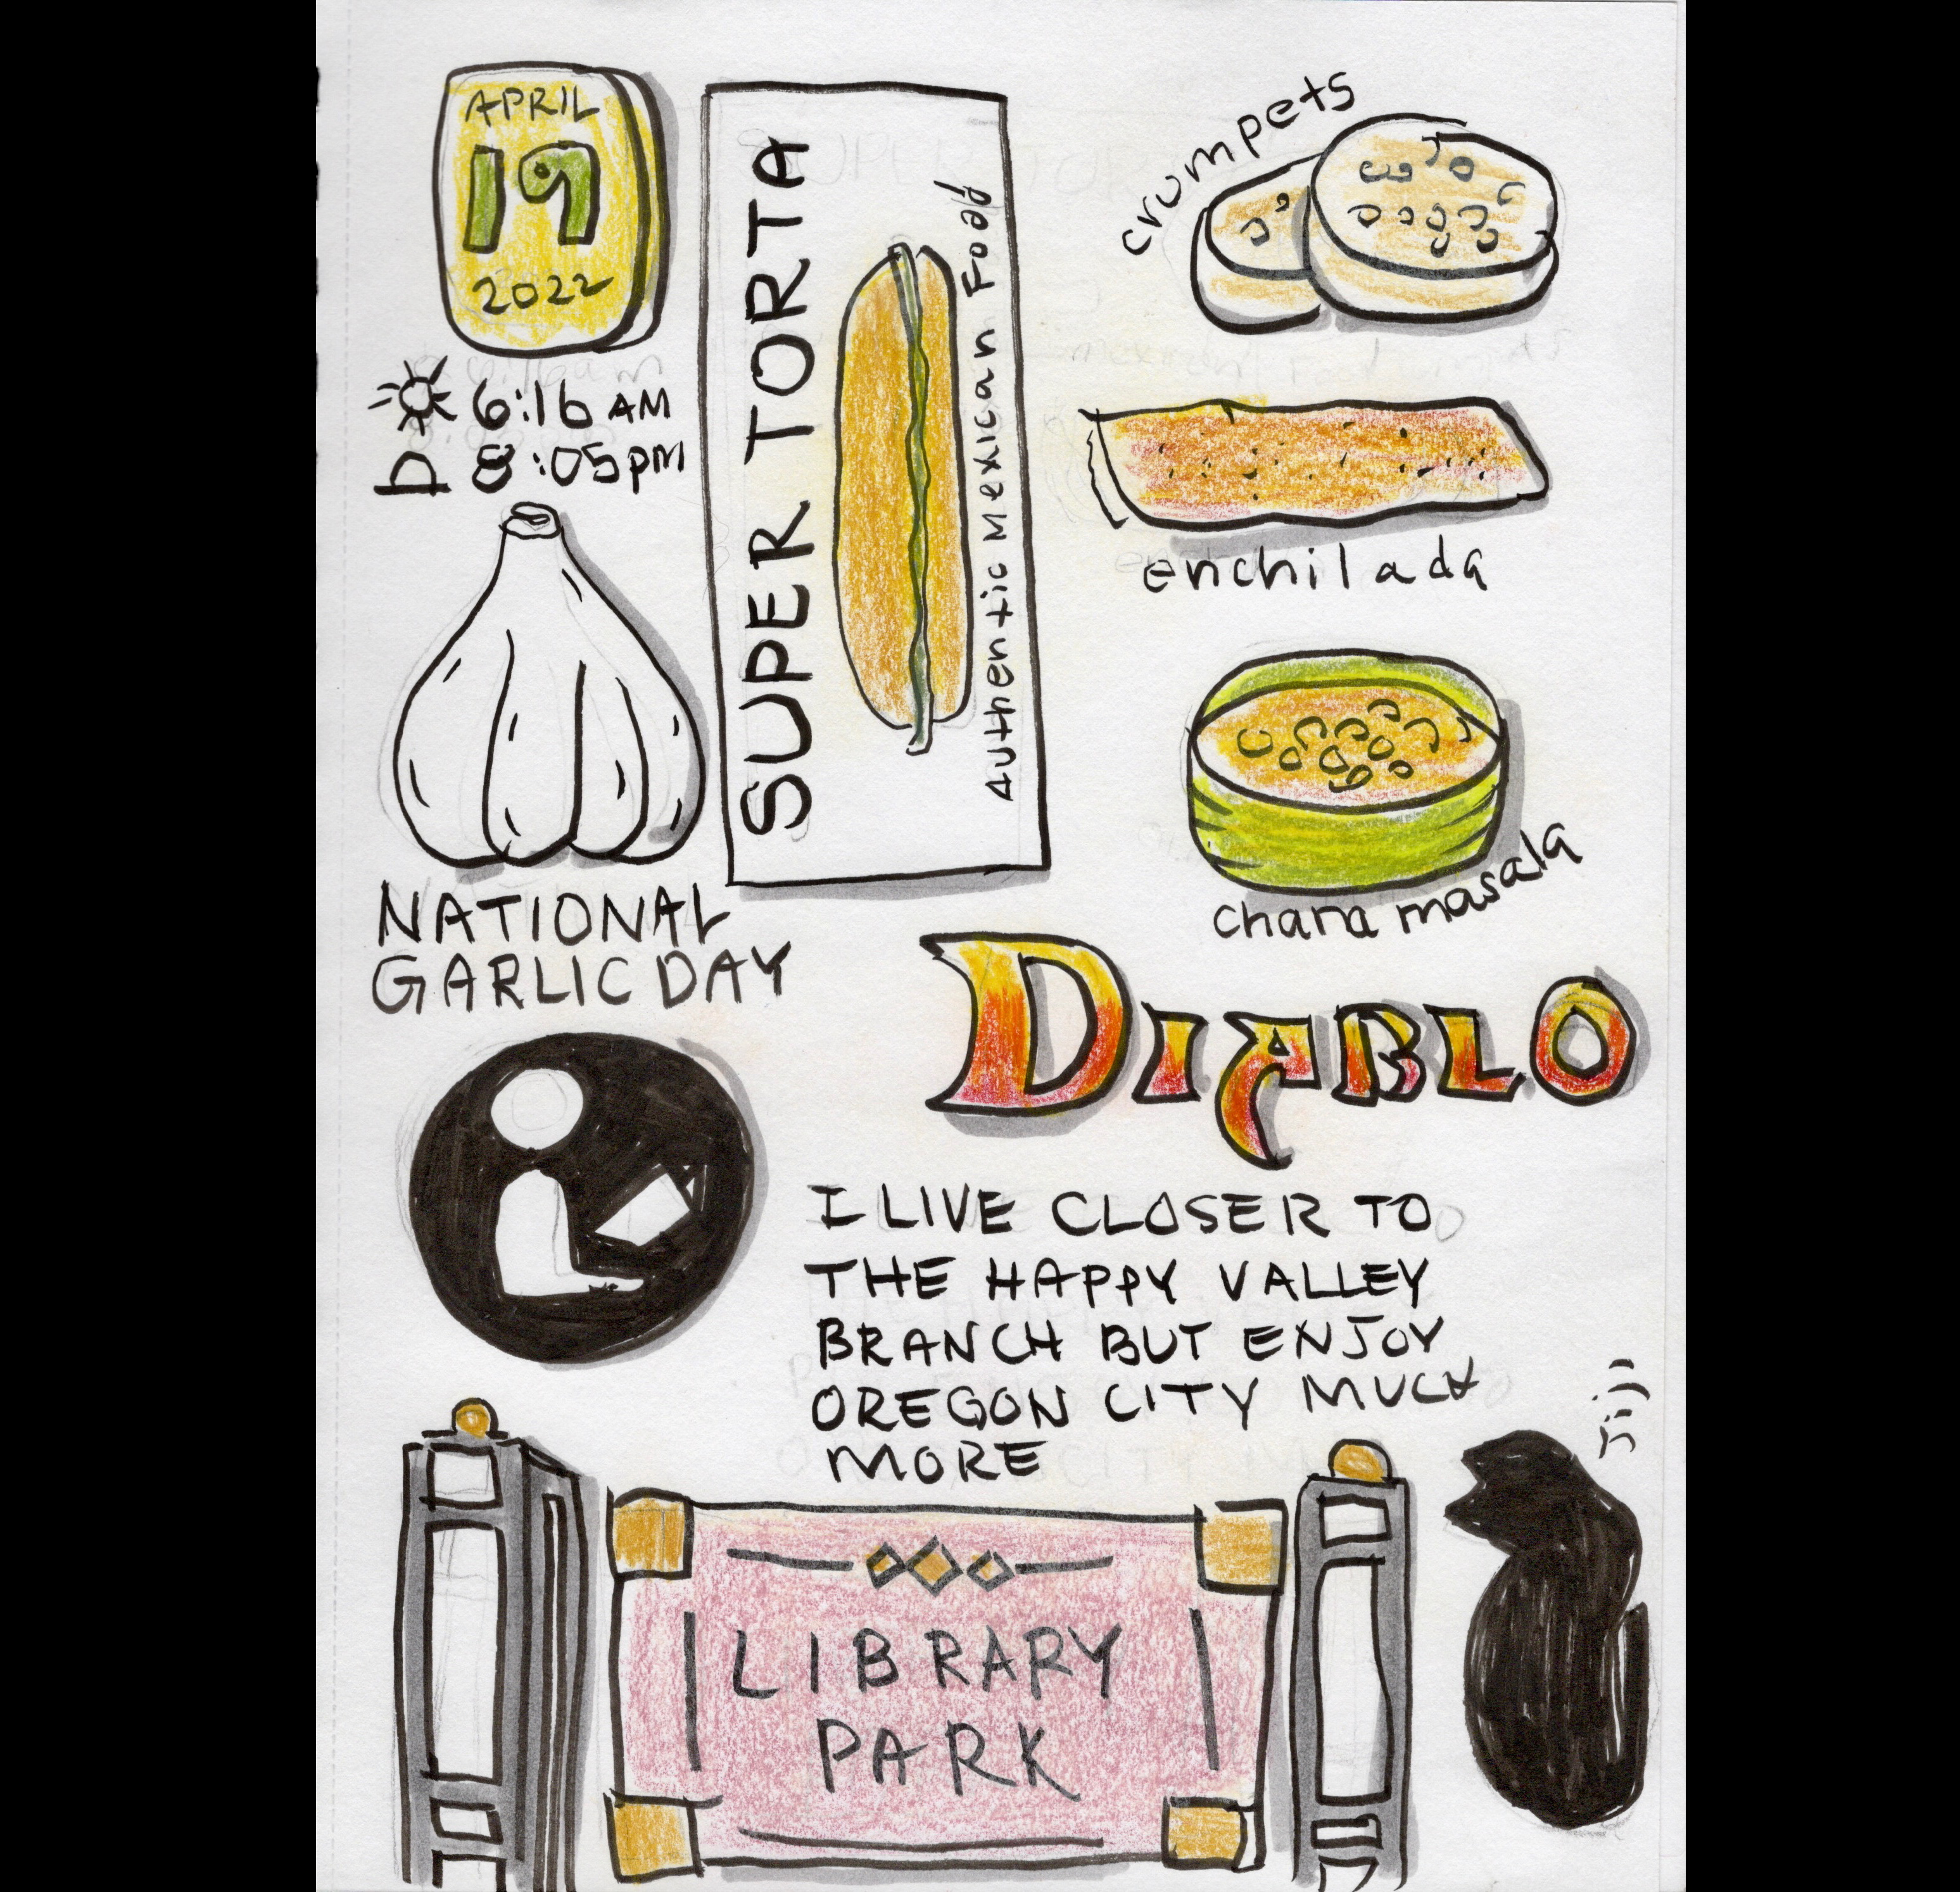 APRIL
19
2022
6:16 AM
8:05PM
NATIONAL
GARLIC DAY
SUPER TORTA
Authentic Mexican Food
crumpets
enchilada
chana masala
DIABLO
I LIVE CLOSER TO
THE HAPPY VALLEY
BRANCH BUT ENJOY
OREGON CITY MUCH
MORE
jiji
LIBRARY
PARK